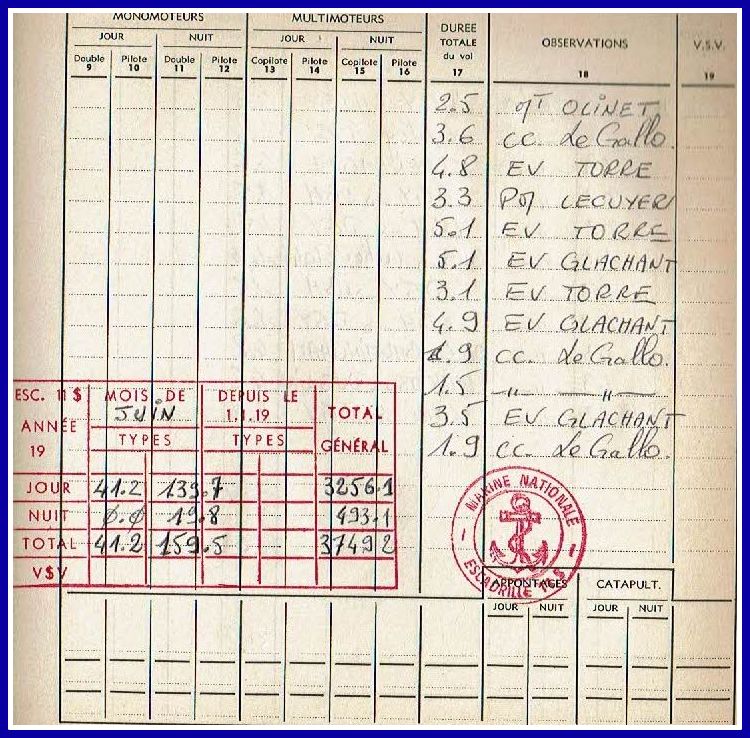 MONOMOTEURS MULTIMOTEURS DUREE TOTALE du vol OBSERVATIONS V.S.V.
JOUR NUIT JOUR NUIT
Double Pilote Double Pilote Copilote Pilote Copilote Pilote
9 10 11 12 13 14 15 16 17 18 19
2.5 OLINET
3.6 CC. Le Gallo.
4.8 EV TORRE
3.3 LECUYER
5.1 EV TORRE
5.1 EV GLACHANT
3.1 EV TORRE
4.9 EV GLACHANT
1.9 CC. Le Gallo.
1.5 " — " —
3.5 EV GLACHANT
1.9 CC. Le Gallo.
ESC. 11 S MOIS DE JUIN DEPUIS LE 1.1.19 TOTAL GÉNÉRAL
ANNÉE 19 TYPES TYPES
JOUR 41.2 139.7 3256.1
NUIT 0.0 19.8 493.1
TOTAL 41.2 159.5 3749 2
VSV
MARINE NATIONALE
ESCADRILLE
APPONTAGES CATAPULT.
JOUR NUIT JOUR NUIT